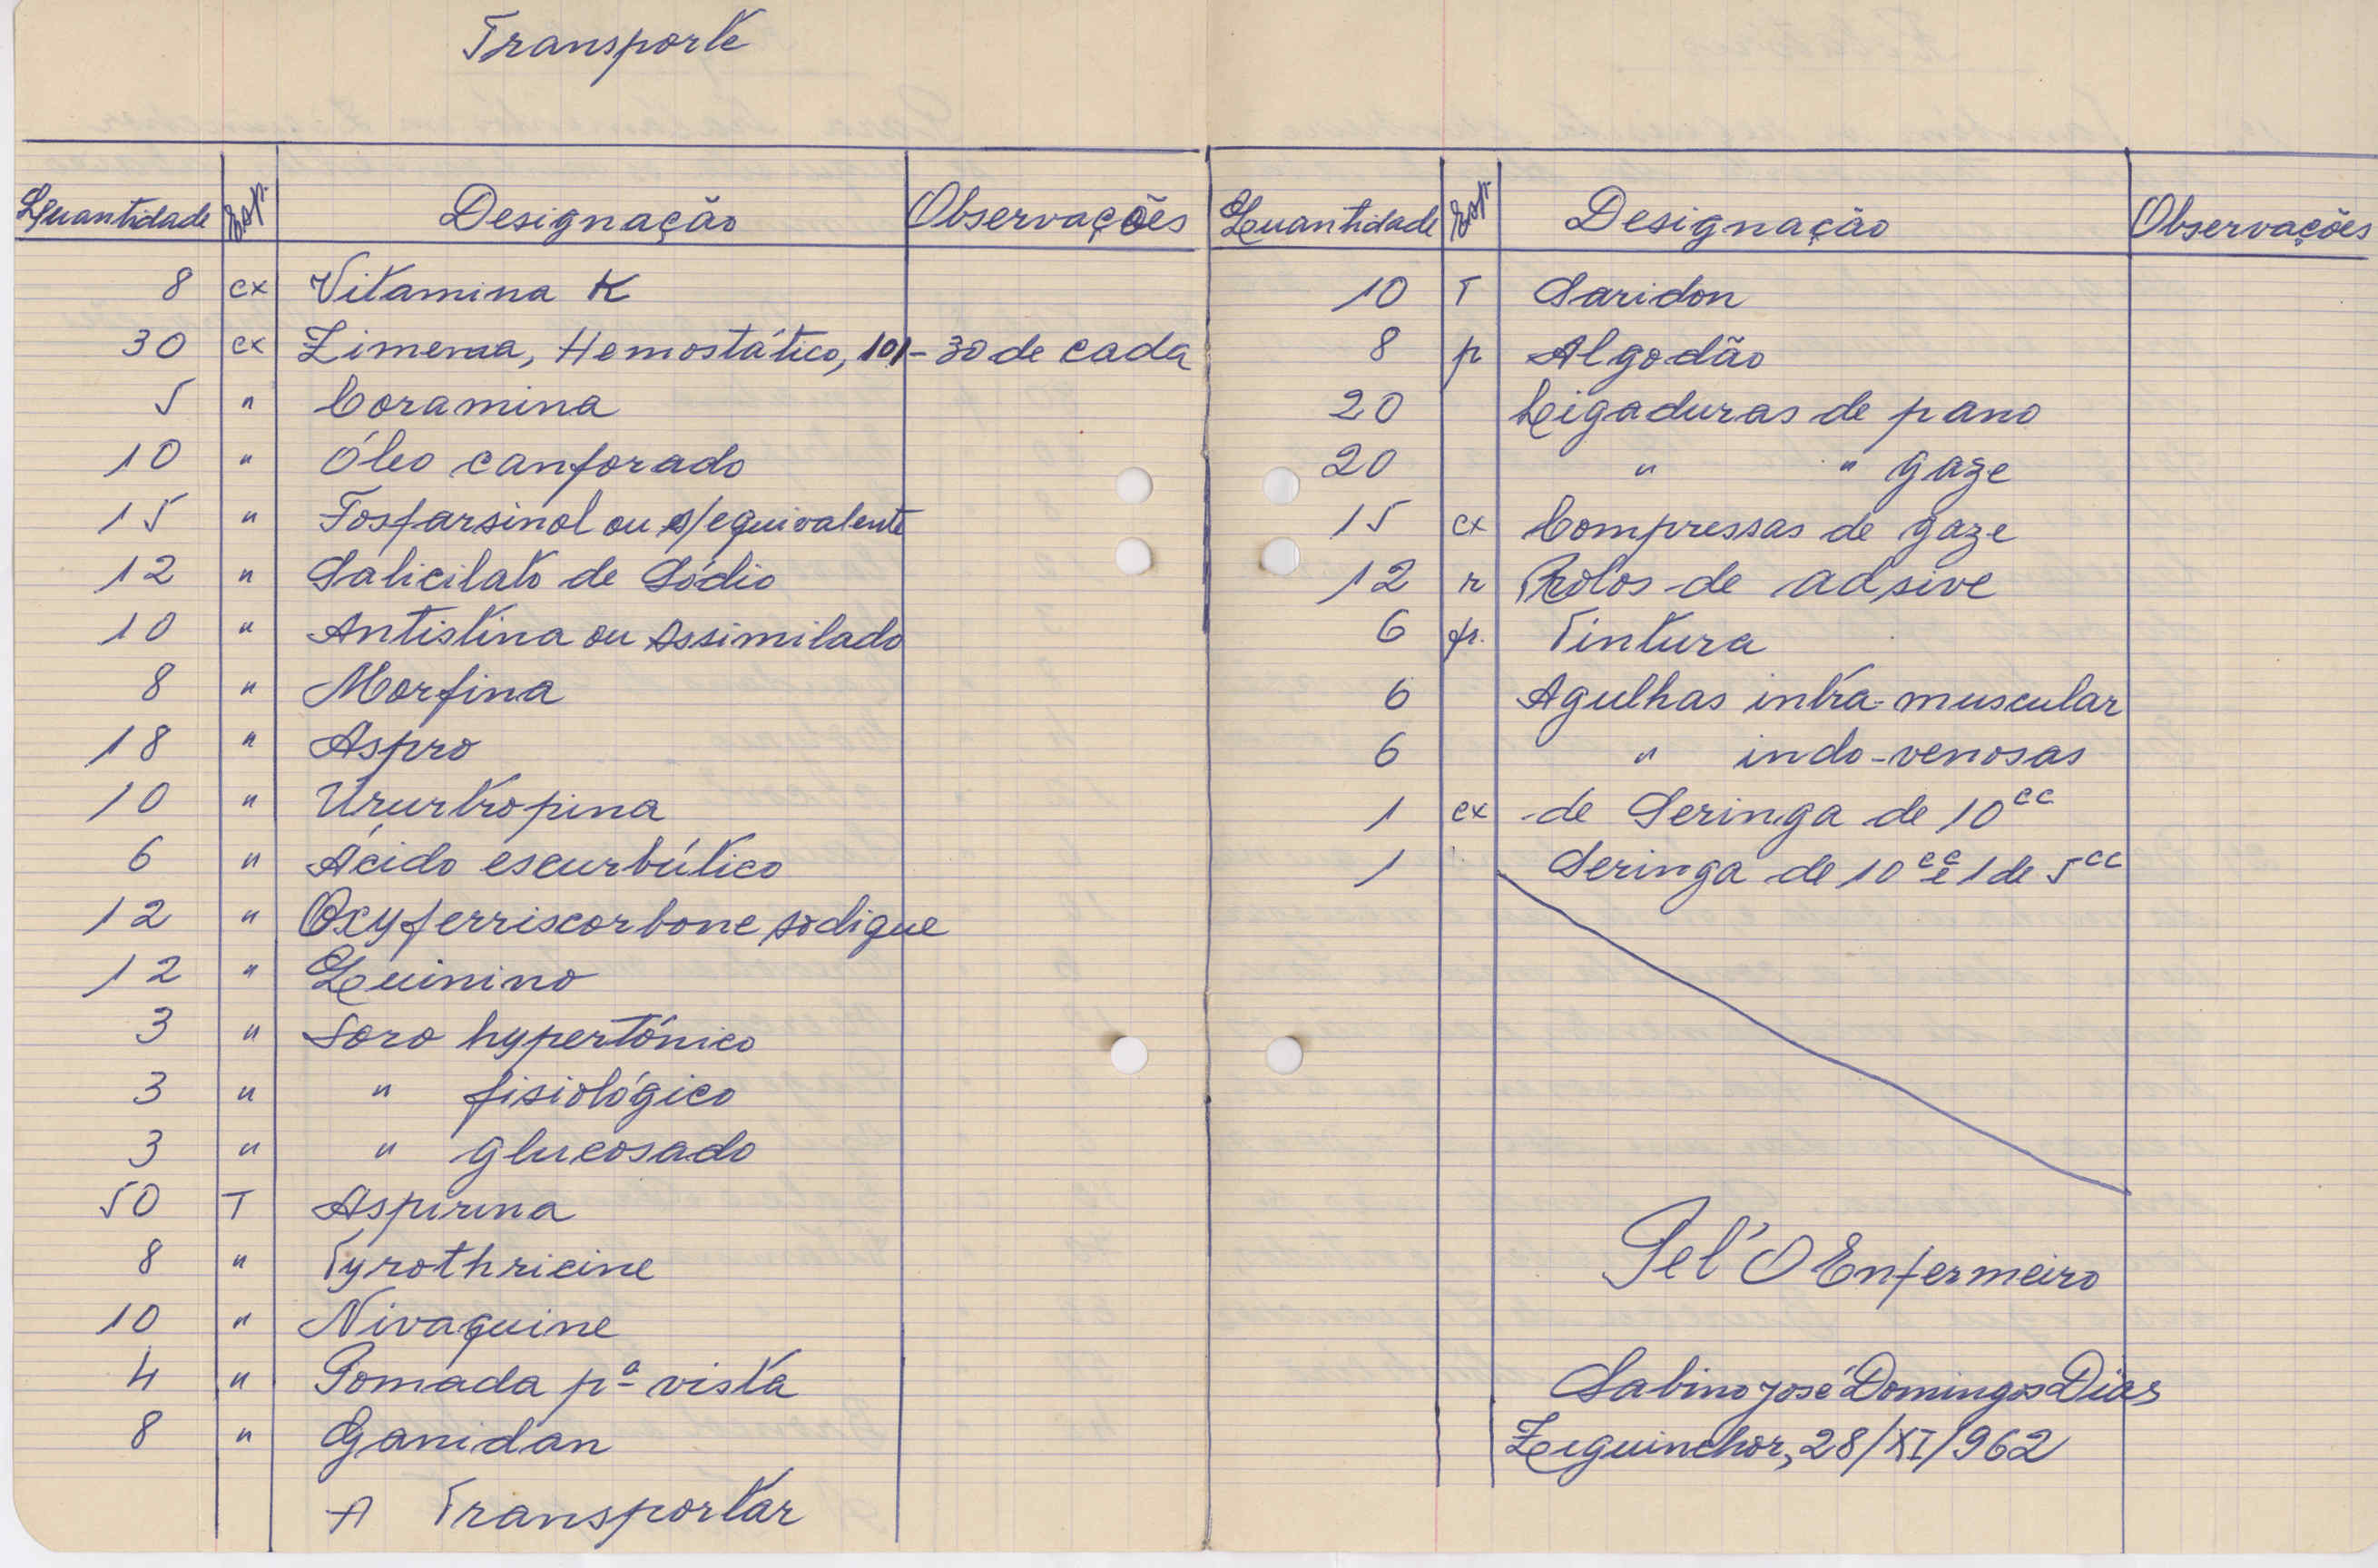 Transporte
Quantidade Esp. Designação Observações
8 cx Vitamina K
30 cx Zimema, Hemostático, 101 - 30 de cada
5 " Coramina
10 " Óleo canforado
15 " Fosfarsinol ou s/equivalente
12 " Salicilato de Sódio
10 " Antistina ou Assimilado
8 " Morfina
18 " Aspro
10 " Ururtropina
6 " Ácido escurbútico
12 " Oxyferriscorbone sodique
12 " Quinino
3 " Soro hypertónico
3 " " fisiológico
3 " " glucosado
50 T Aspirina
8 " Tyrothricine
10 " Nivaquine
4 " Pomada pª vista
8 " Ganidan
A Transportar
Quantidade Esp. Designação Observações
10 T Saridon
8 p Algodão
20 Ligaduras de pano
20 " " gaze
15 cx Compressas de gaze
12 r Rolos de adsive
6 fr. Tintura
6 Agulhas intra-muscular
6 " indo-venosas
1 cx de Seringa de 10cc
1 Seringa de 10cc e 1 de 5cc
Pel'O Enfermeiro
Sabino José Domingos Dias
Ziguinchor, 28/XI/962